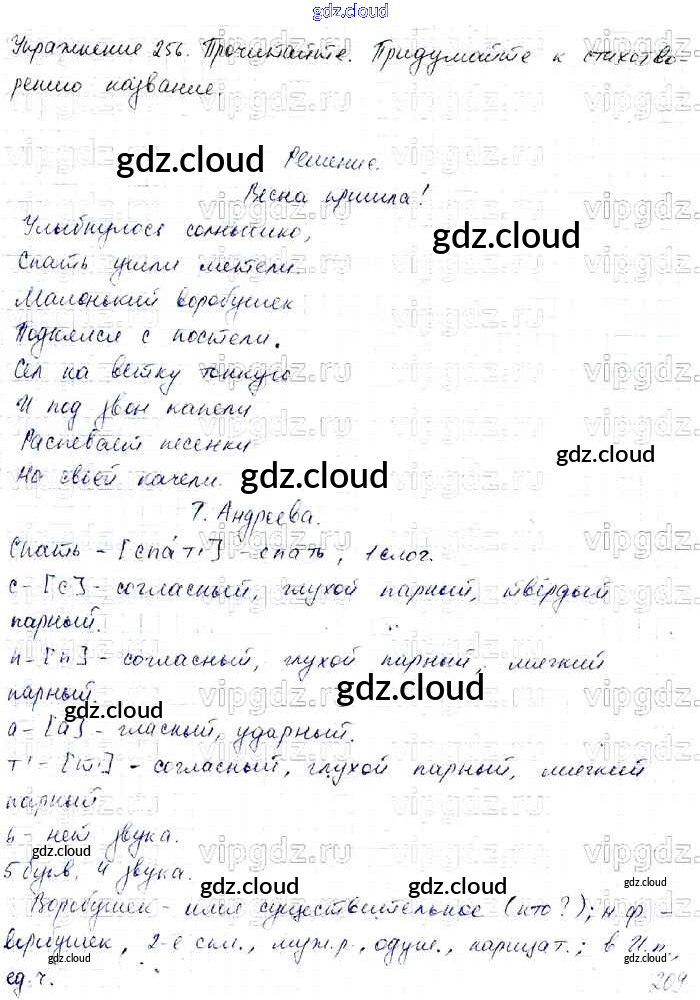 gdz.cloud
Упражнение 256. Прочитайте. Придумайте к стихотво-
рению название.
gdz.cloud
Решение.
Весна пришла!
Улыбнулось солнышко,
gdz.cloud
Спать ушли метели.
Маленький воробушек
Поднялся с постели.
Сел на ветку тонкую
И под звон капели
Распевает песенки
gdz.cloud
На своей качели.
gdz.cloud
Т. Андреева.
Спать - [спат'] - спать, 1 слог.
с - [с] - согласный, глухой парный, твёрдый
парный.
п - [п] - согласный, глухой парный, мягкий
парный
gdz.cloud
а - [а] - гласный, ударный.
т' - [т'] - согласный, глухой парный, мягкий
парный
ь - нет звука.
gdz.cloud
5 букв, 4 звука.
gdz.cloud
gdz.cloud
gdz.cloud
Воробушек - имя существительное (кто?); н.ф. -
воробушек, 2-е скл., муж.р., одуш., нарицат.; в И.п.,
gdz.cloud
gdz.cloud
ед.ч.
209